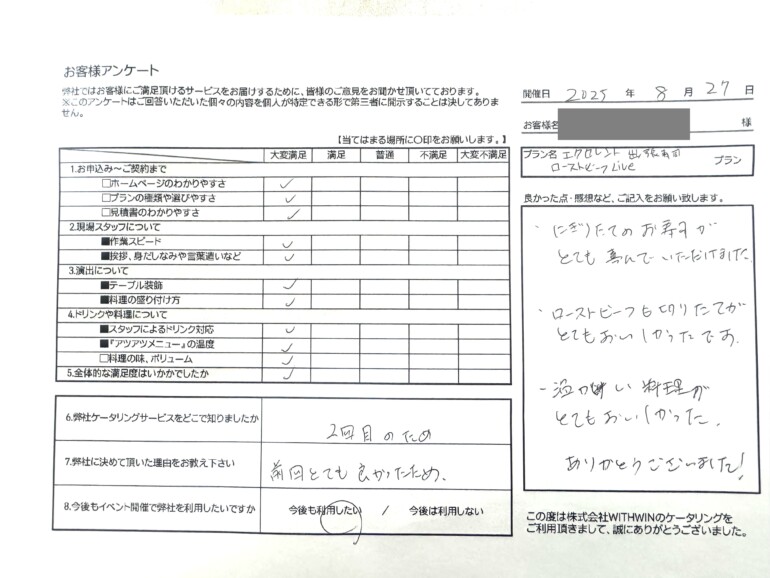 お客様アンケート
弊社ではお客様にご満足頂けるサービスをお届けするために、皆様のご意見をお聞かせ頂いております。
※このアンケートはご回答いただいた個々の内容を個人が特定できる形で第三者に開示することは決してありま
せん。
開催日 2025 年 8 月 27 日
お客様名 様
プラン名 エクセレント 出張寿司 プラン
ローストビーフLive
【当てはまる場所に〇印をお願いします。】
大変満足 満足 普通 不満足 大変不満足
1.お申込み～ご契約まで
□ホームページのわかりやすさ ✓
□プランの種類や選びやすさ ✓
□見積書のわかりやすさ ✓
2.現場スタッフについて
■作業スピード ✓
■挨拶、身だしなみや言葉遣いなど ✓
3.演出について
■テーブル装飾 ✓
■料理の盛り付け方 ✓
4.ドリンクや料理について
■スタッフによるドリンク対応 ✓
■『アツアツメニュー』の温度 ✓
□料理の味、ボリューム ✓
5.全体的な満足度はいかがでしたか ✓
6.弊社ケータリングサービスをどこで知りましたか 2回目のため
7.弊社に決めて頂いた理由をお教え下さい 前回とても良かったため、
8.今後もイベント開催で弊社を利用したいですか 今後も利用したい / 今後は利用しない
良かった点・感想など、ご記入をお願い致します。
・にぎりたてのお寿司が
とても喜んでいただけました
・ローストビーフも切りたてが
とてもおいしかったです。
・温かい料理が
とてもおいしかった。
ありがとうございました!
この度は株式会社WITHWINのケータリングを
ご利用頂きまして、誠にありがとうございました。